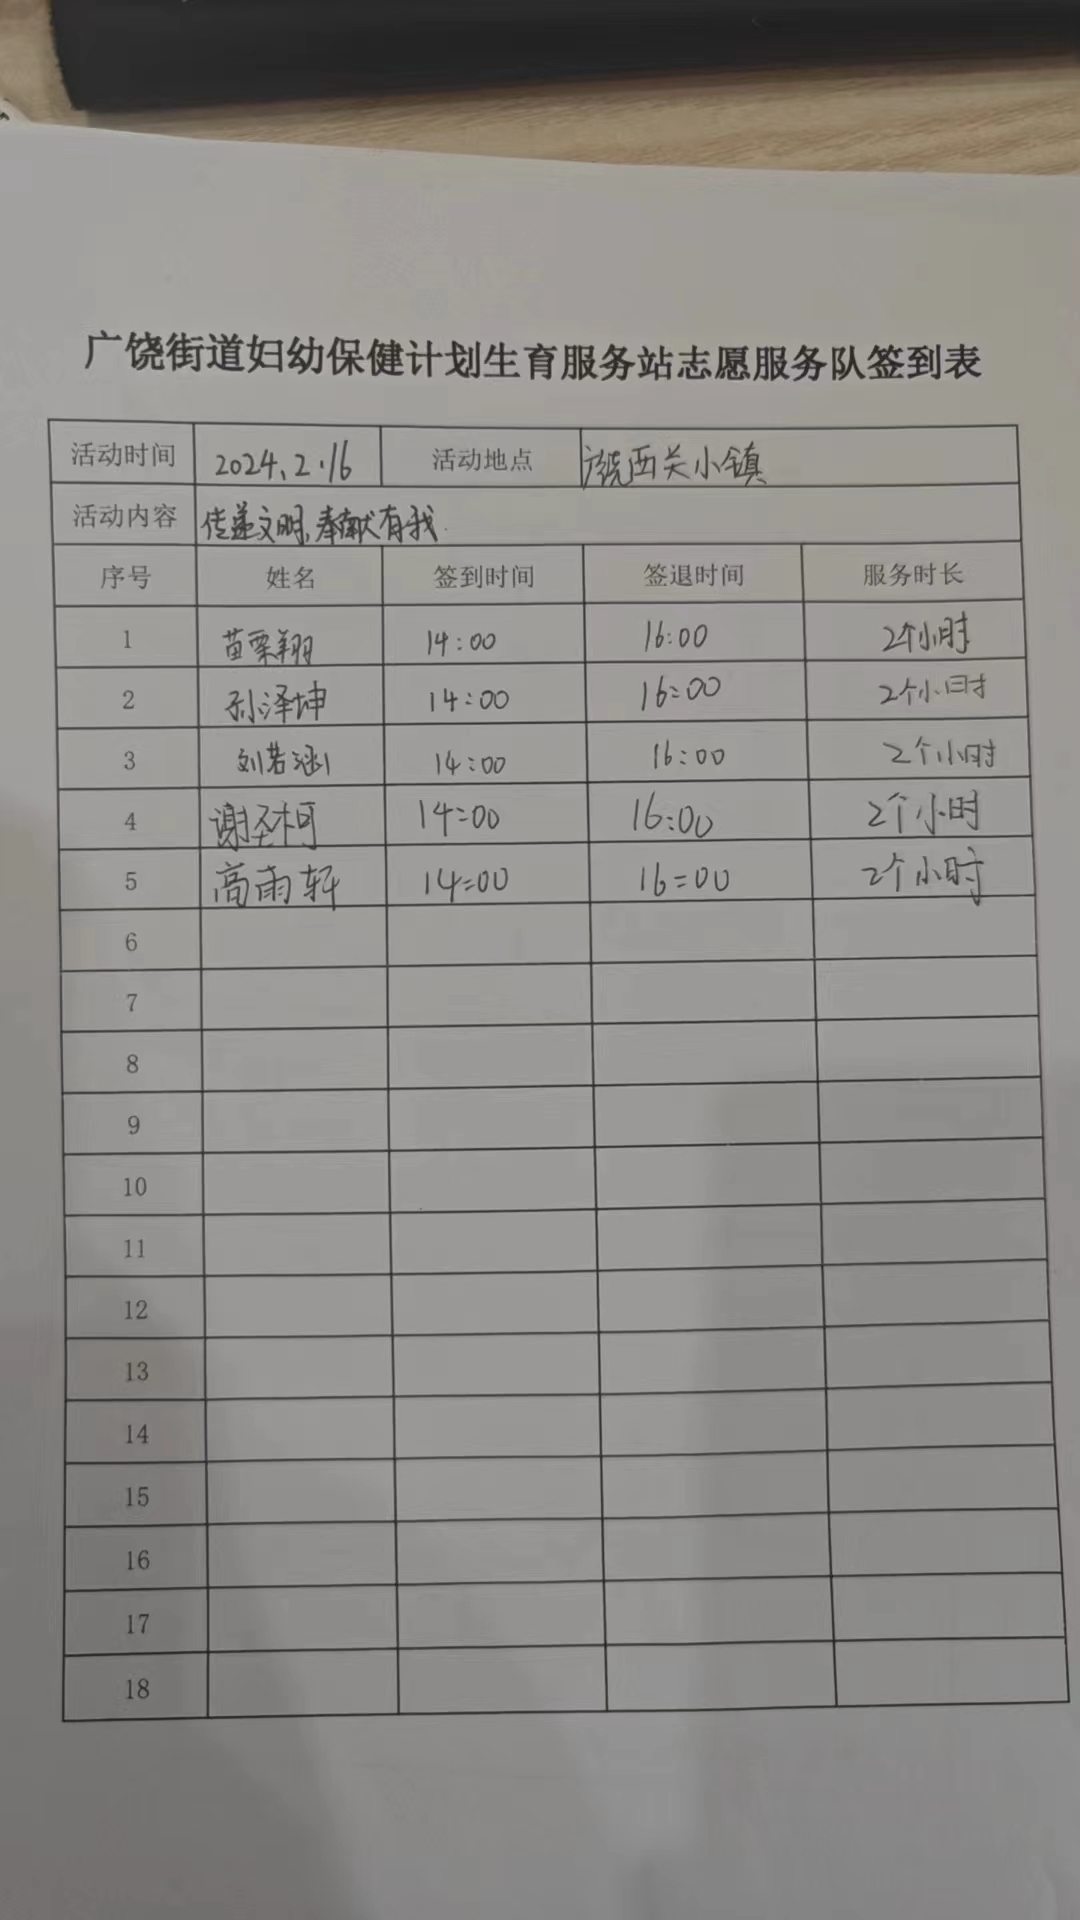 广饶街道妇幼保健计划生育服务站志愿服务队签到表
活动时间 2024.2.16 活动地点 广饶西关小镇
活动内容 传递文明,奉献有我.
序号 姓名 签到时间 签退时间 服务时长
1 苗栗翔 14:00 16:00 2个小时
2 孙泽坤 14:00 16:00 2个小时
3 刘若涵 14:00 16:00 2个小时
4 谢圣柯 14:00 16:00 2个小时
5 高雨轩 14:00 16:00 2个小时
6
7
8
9
10
11
12
13
14
15
16
17
18